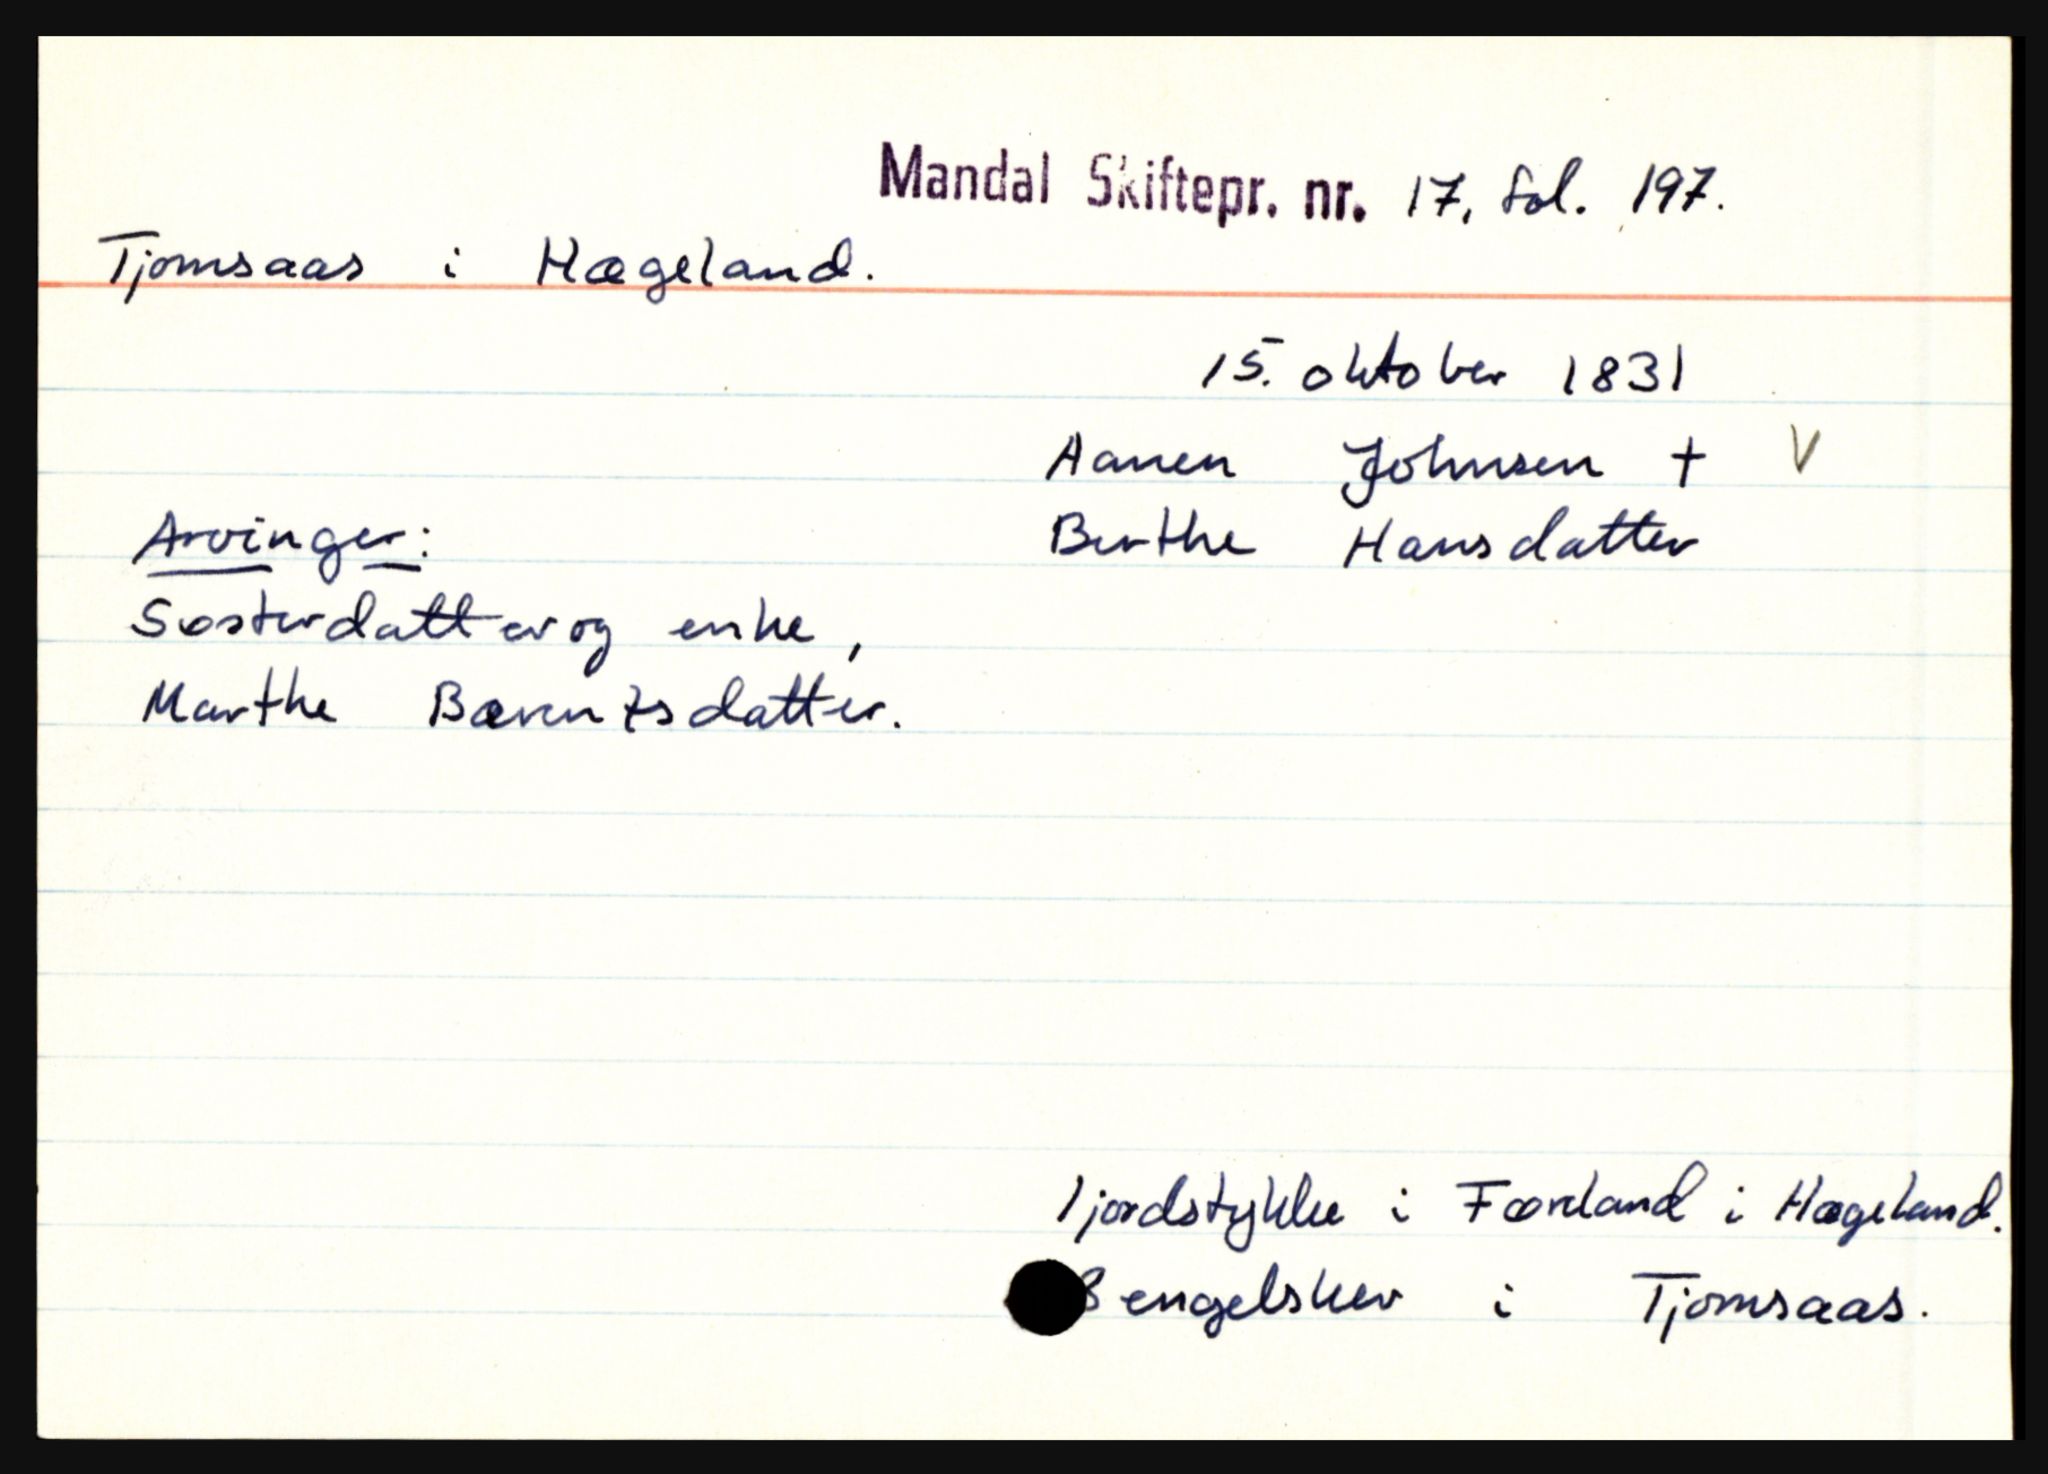 Mandal Skiftepr. nr. 17, fol. 197.
Tjomsaas i Hægeland.
15. oktober 1831
Aanen Johnsen + V
Arvinger: Berthe Hansdatter
Søsterdatter og enke,
Marthe Bærentsdatter.
1 jordstykke i Færeland i Hægeland.
3 engelsker i Tjomsaas.